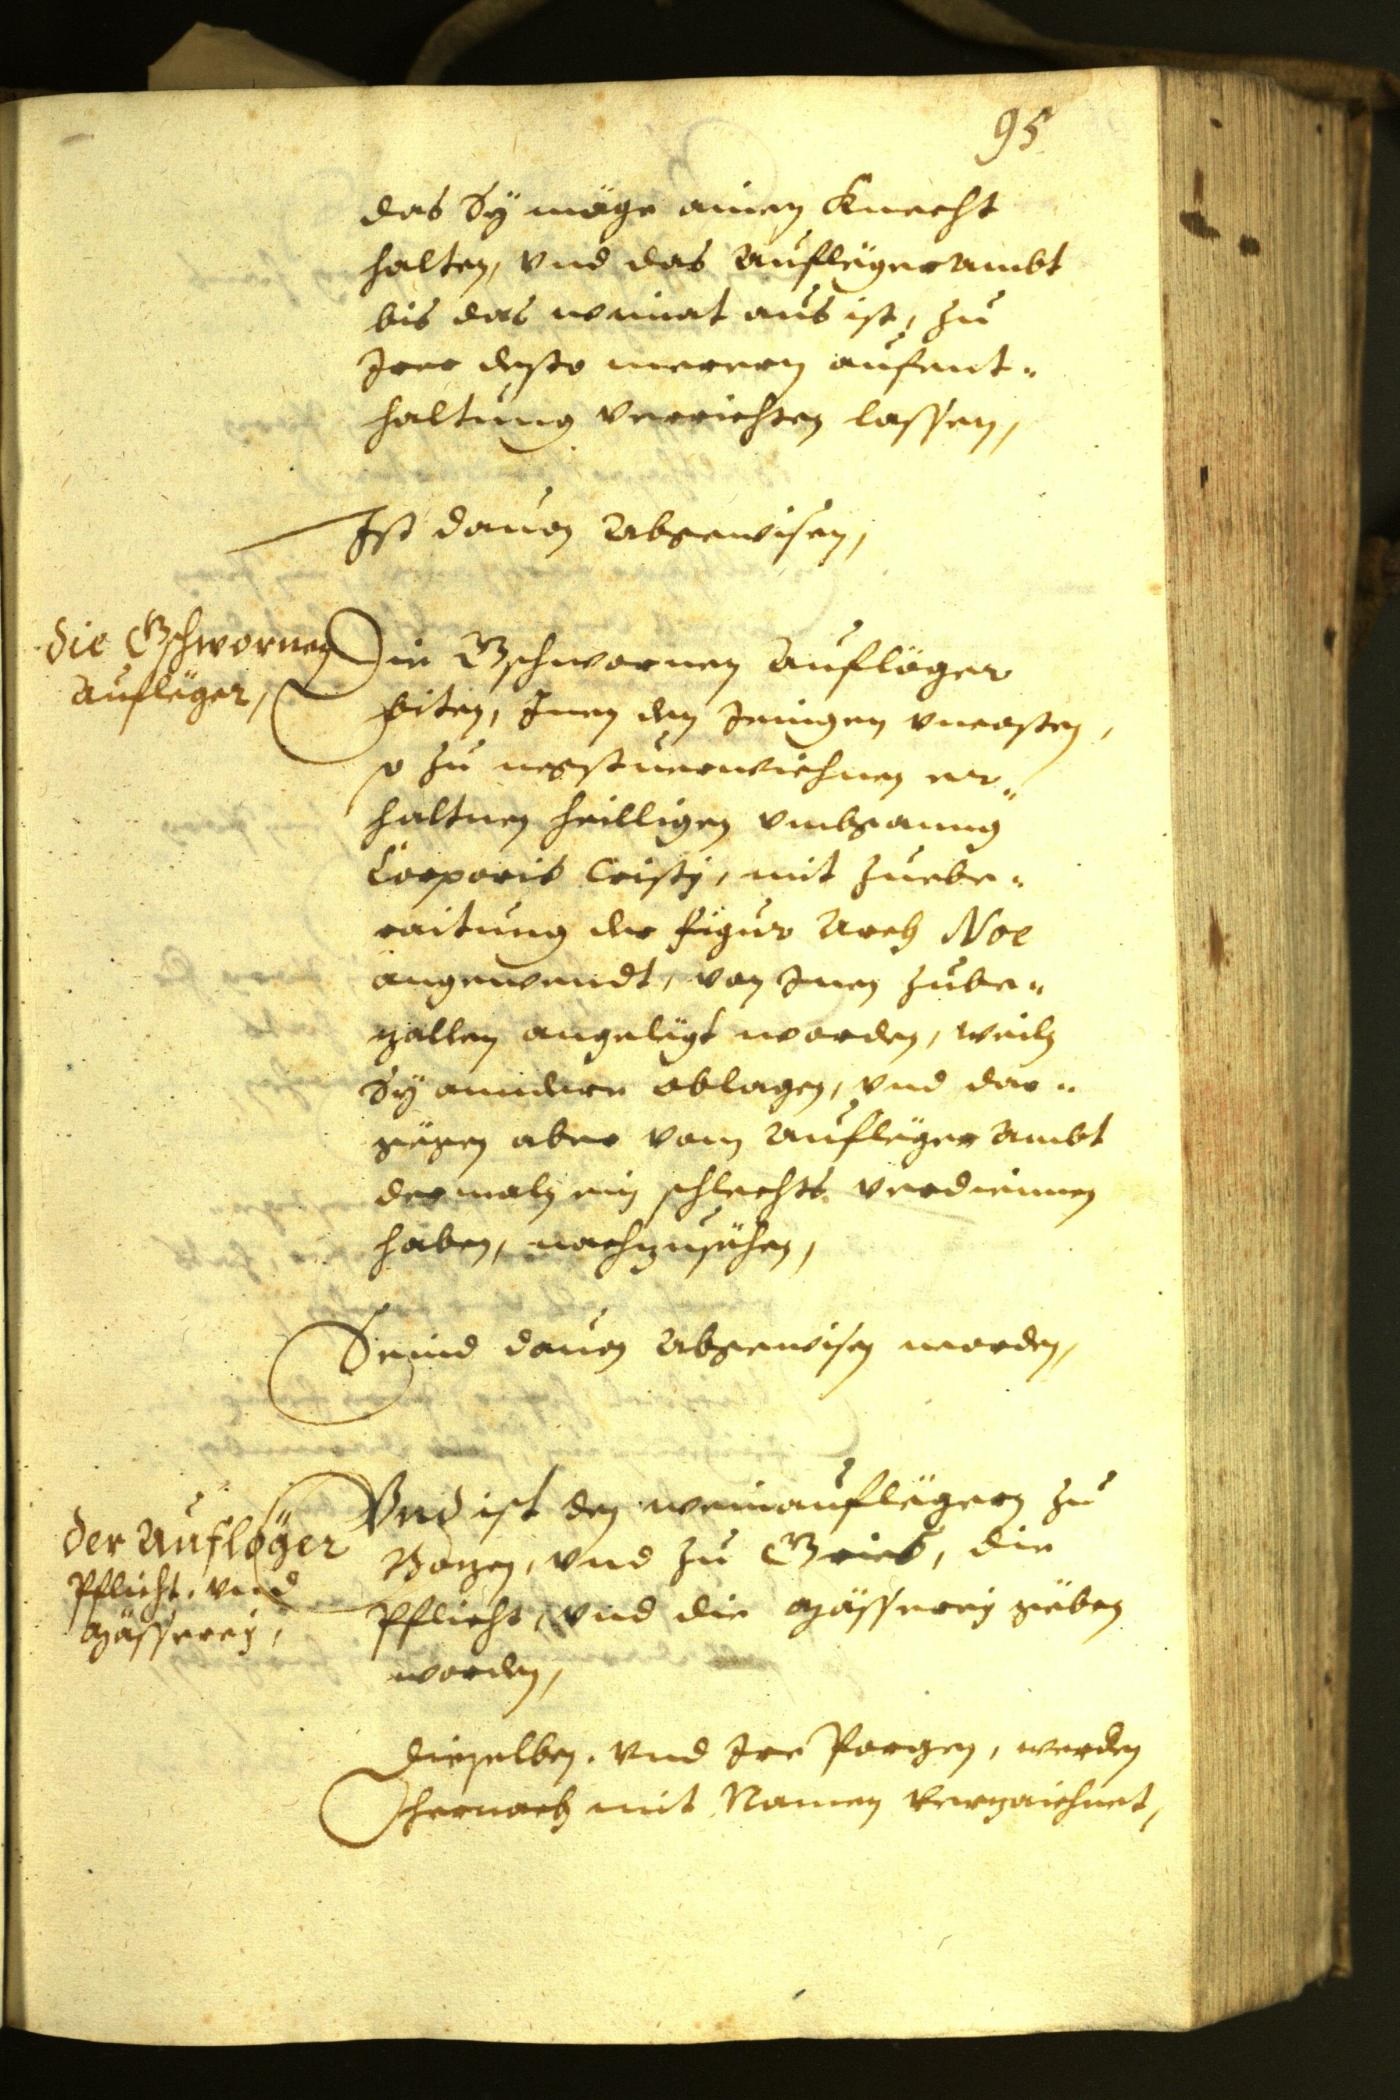 95
das Sÿ möge ainen Knecht
halten, vnd das Auflegerambt
bis das weinat aus ist, zu
Irer desto merern aufent¬
haltung verrichten lassen,
Ist dauon Abgewisen,
die Gschwornen
Aufleger,
Die Gschwornen Aufleger
biten, Inen den Jenigen vncosten,
so zu negstuerwichnen er¬
haltnen heilligen vmbgannng
Corporis Cristj, mit zuebe¬
raitung der figur Arch Noe
angewendt, von Inen zube¬
zallen angelegt worden, weilen
Sÿ anndere oblagen, vnd dar¬
gegen aber vom Aufleger Ambt
dermaln ein schlechts verdiennen
haben, nachzusehen,
Seind dauon Abgewisen worden,
der Aufleger
Pflicht, vnd
zässerej,
Vnd ist den weinauflegern zu
Bozen, vnd zu Gries, die
Pflicht, vnd die zässerej geben
worden,
dieselben, vnd Ire Porgen, werden
hernach mit Namen verzaichnet,